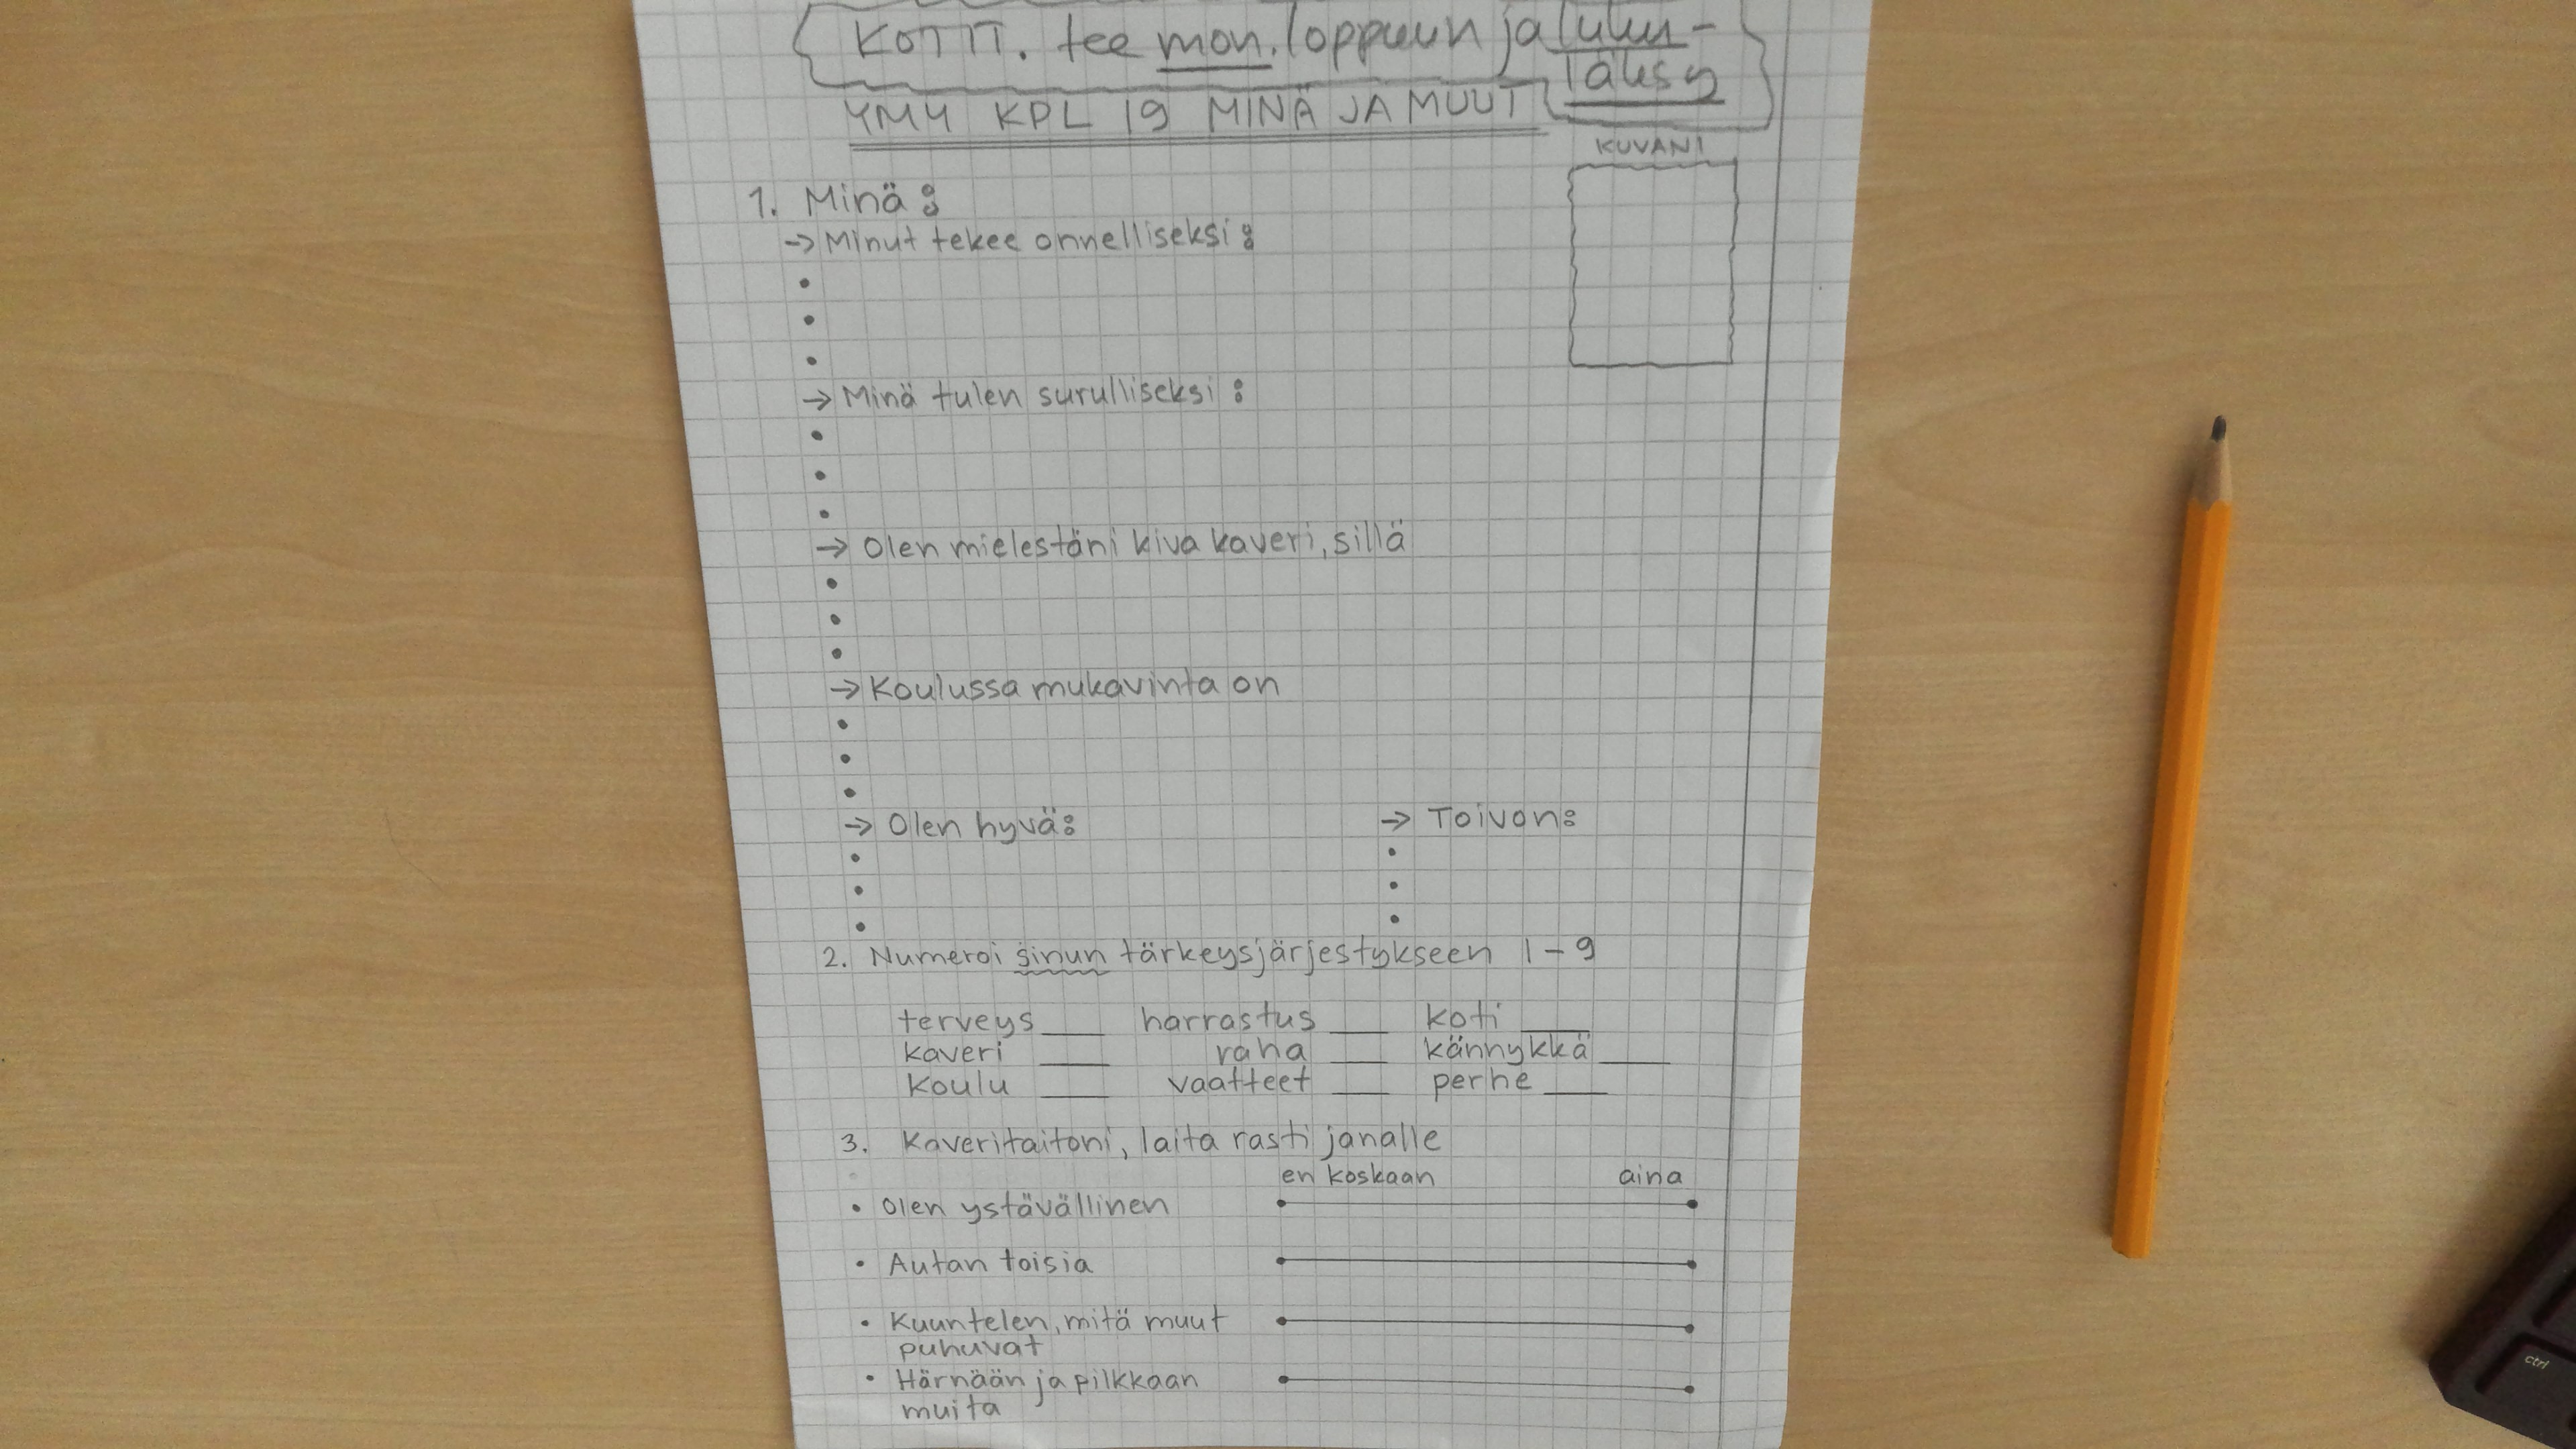 KOTIT. tee mon. loppuun ja luku-
läksy
YMY KPL 19 MINÄ JA MUUT
KUVANI
1. Minä:
→ Minut tekee onnelliseksi:
→ Minä tulen surulliseksi:
→ Olen mielestäni kiva kaveri, sillä
→ Koulussa mukavinta on
→ Olen hyvä: → Toivon:
2. Numeroi sinun tärkeysjärjestykseen 1-9
terveys ___ harrastus ___ koti ___
kaveri ___ raha ___ kännykkä ___
koulu ___ vaatteet ___ perhe ___
3. Kaveritaitoni, laita rasti janalle
en koskaan aina
• Olen ystävällinen
• Autan toisia
• Kuuntelen, mitä muut
puhuvat
• Härnään ja pilkkaan
muita
ctrl